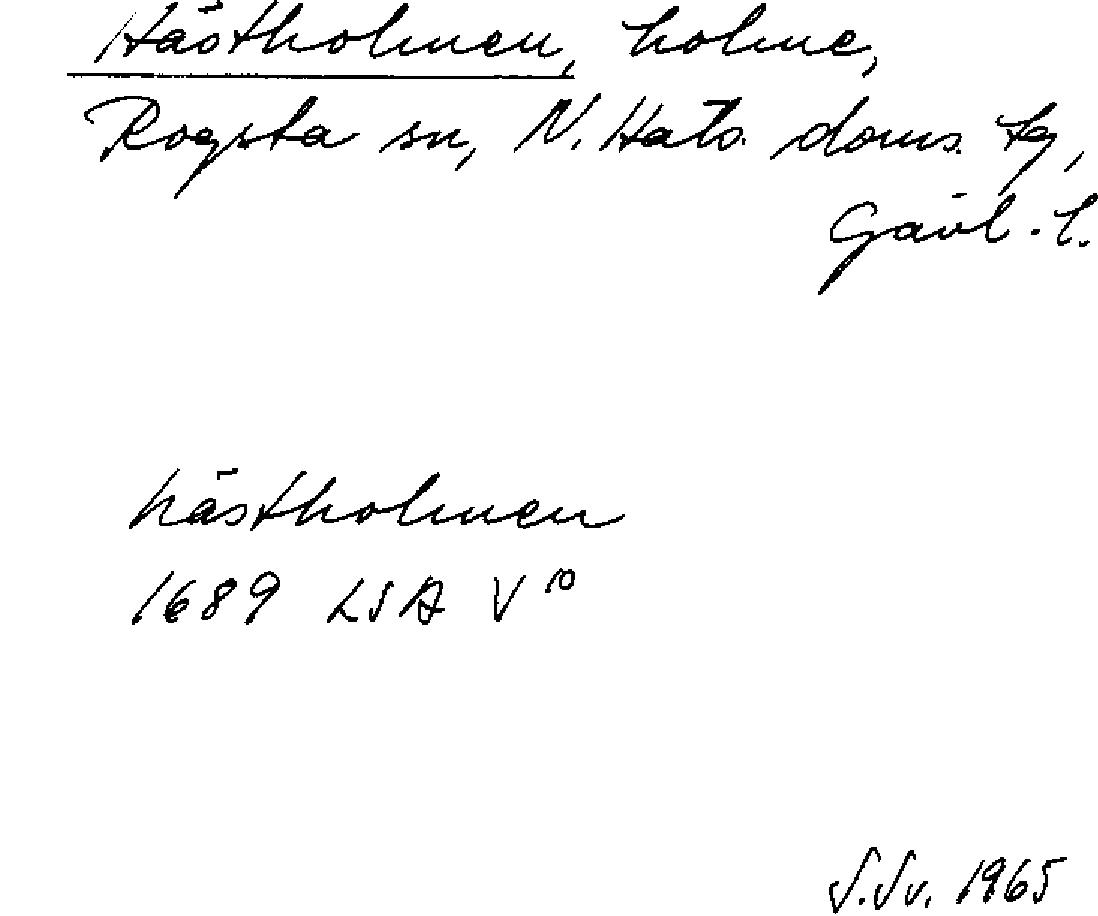 Hästholmen, holme,
Rogsta sn, N. Häls. doms. tg,
Gävl. l.
hästholmen
1689 LSA V¹⁰
S.Sv. 1965